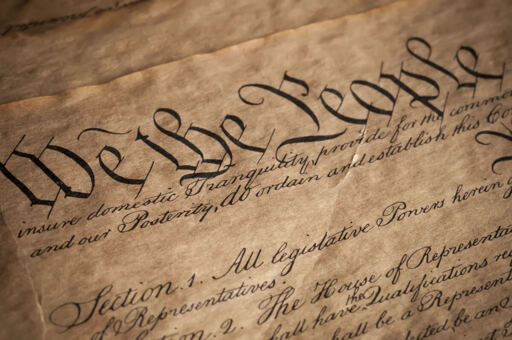 We the People
insure domestic Tranquility, provide for the common
and our Posterity, do ordain and establish this Co
Section. 1. All legislative Powers herein g
of Representatives.
n. 2. The House of Representat
hall have the Qualifications re
hall be a Represent